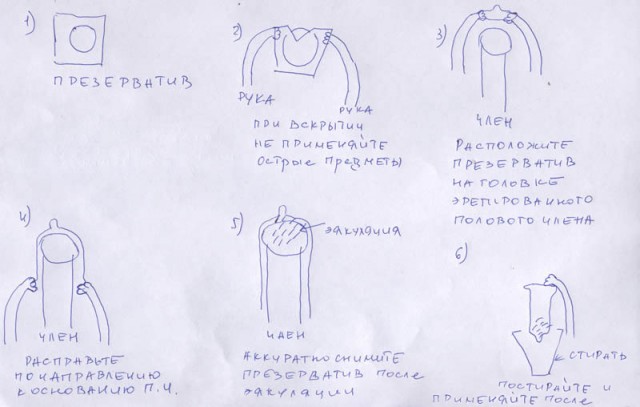 1)
ПРЕЗЕРВАТИВ
2)
РУКА
РУКА
ПРИ ВСКРЫТИИ
НЕ ПРИМЕНЯЙТЕ
ОСТРЫЕ ПРЕДМЕТЫ
3)
ЧЛЕН
РАСПОЛОЖИТЕ
ПРЕЗЕРВАТИВ
НА ГОЛОВКЕ
ЭРЕГИРОВАННОГО
ПОЛОВОГО ЧЛЕНА
4)
ЧЛЕН
РАСПРАВЬТЕ
ПО НАПРАВЛЕНИЮ
К ОСНОВАНИЮ П.Ч.
5)
ЭЯКУЛЯЦИЯ
ЧЛЕН
АККУРАТНО СНИМИТЕ
ПРЕЗЕРВАТИВ ПОСЛЕ
ЭЯКУЛЯЦИИ
6)
СТИРАТЬ
ПОСТИРАЙТЕ И
ПРИМЕНЯЙТЕ ПОСЛЕ